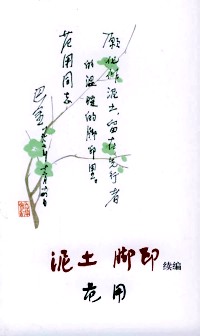 愿化作泥土,留在先行者
的温暖的脚印里。
范用同志
巴金
泥土 脚印 续编
范用